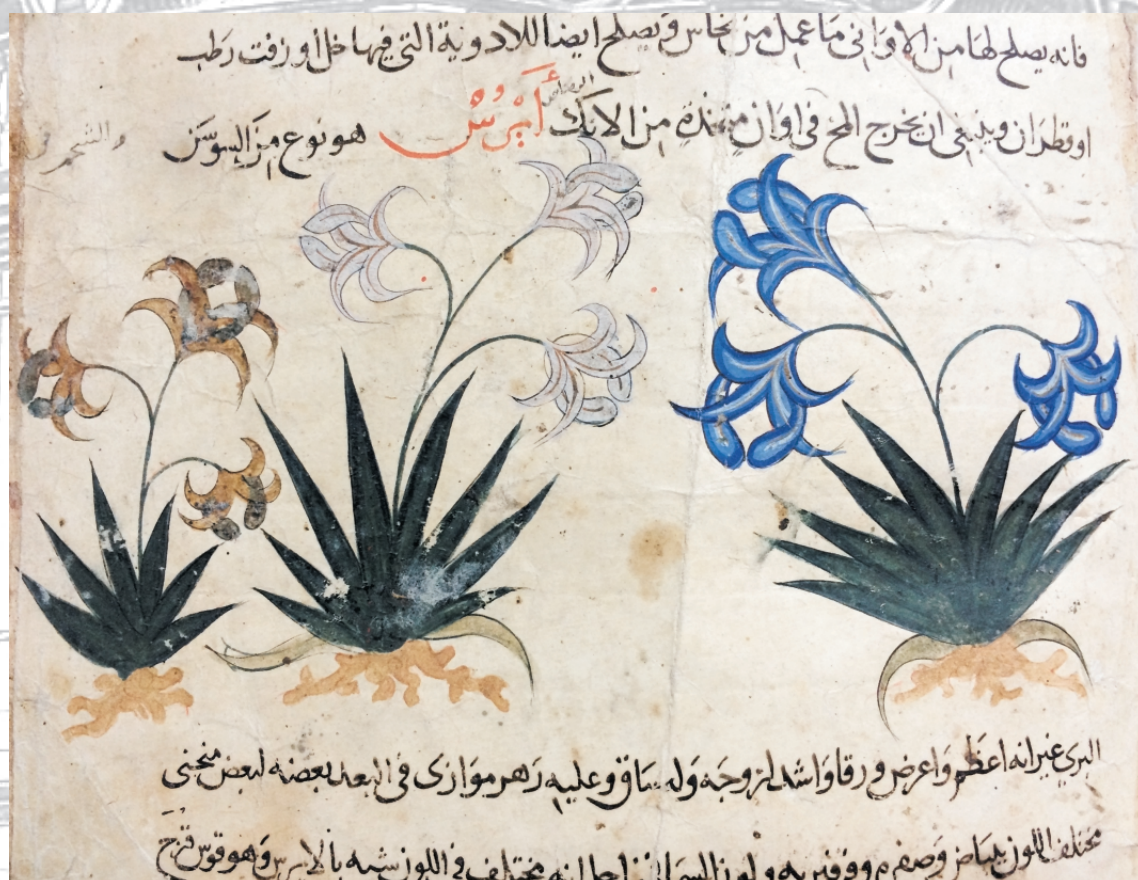 فانه يصلح لها من الاوانى ما عمل من نحاس ويصلح ايضا للادوية التى فيها خل او زفت رطب
او قطران وينبغى ان يخرج المخ فى اوان متخذة من الانك أيرس هو نوع من السوسن
البرى غير انه اعظم واعرض ورقا واشد لزوجة وله ساق وعليه زهر موازى فى البعد بعضه لبعض منحنى
مختلف اللون بياض وصفرة وفرفيرية ولون السماء مختلف فى اللون شبه بالايرس وهو قوس قزح